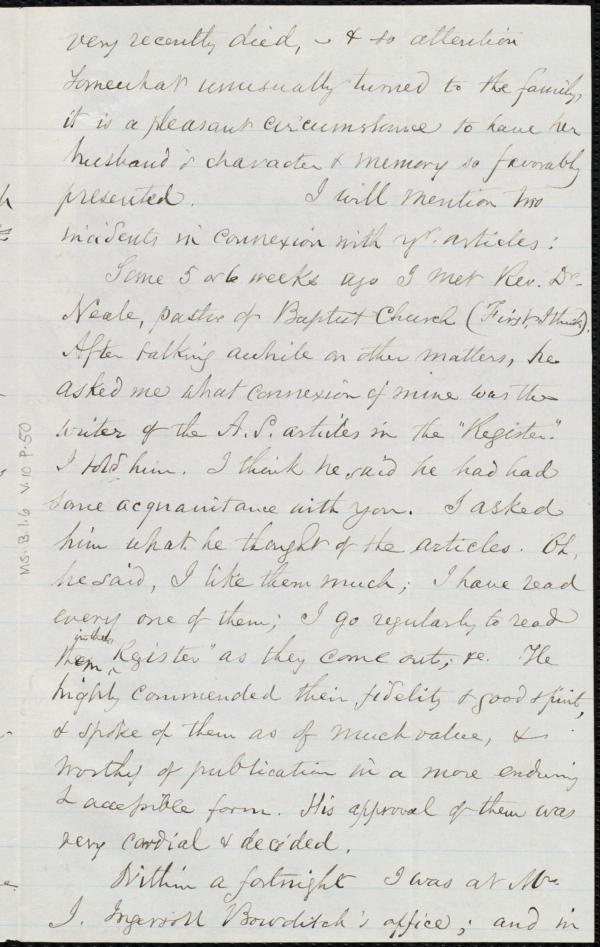 very recently died, - & so attention
somewhat unusually turned to the family,
it is a pleasant circumstance to have her
husband's character & memory so favorably
presented. I will mention two
incidents in connexion with yr. articles:
Some 5 or 6 weeks ago I met Rev. Dr.
Neale, pastor of Baptist Church (First, I think).
After talking awhile on other matters, he
asked me what connexion of mine was the
writer of the A. S. articles in the "Register."
I told him. I think he said he had had
some acquaintance with you. I asked
him what he thought of the articles. Oh,
he said, I like them much; I have read
every one of them; I go regularly to read
them in the "Register" as they come out; &c. He
highly commended their fidelity & good spirit,
& spoke of them as of much value, &
worthy of publication in a more enduring
& accessible form. His approval of them was
very cordial & decided.
Within a fortnight I was at Mr.
J. Ingersoll Bowditch's office; and in
MS. B. 1. 6 V. 10 P. 50